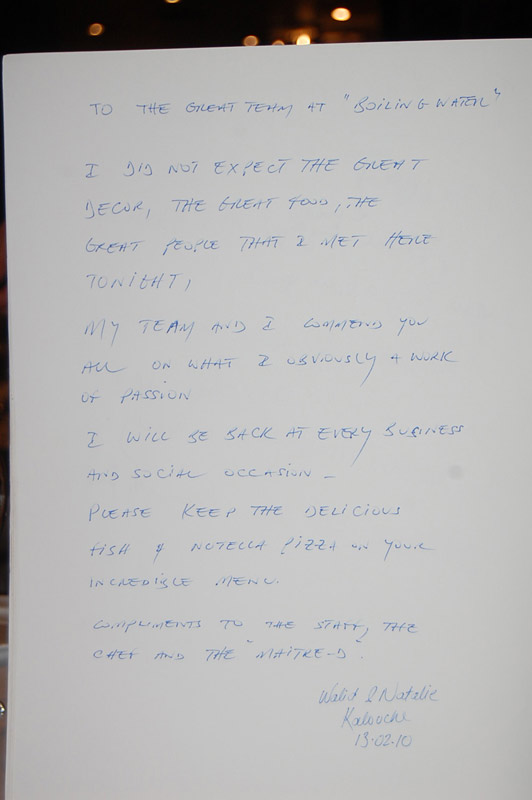 TO THE GREAT TEAM AT "BOILING WATER"
I DID NOT EXPECT THE GREAT
DECOR, THE GREAT FOOD, THE
GREAT PEOPLE THAT I MET HERE
TONIGHT,
MY TEAM AND I COMMEND YOU
ALL ON WHAT I OBVIOUSLY A WORK
OF PASSION
I WILL BE BACK AT EVERY BUSINESS
AND SOCIAL OCCASION -
PLEASE KEEP THE DELICIOUS
FISH & NUTELLA PIZZA ON YOUR
INCREDIBLE MENU.
COMPLIMENTS TO THE STAFF, THE
CHEF AND THE "MAITRE-D".
Walid & Natalie
Kalouche
13.02.10